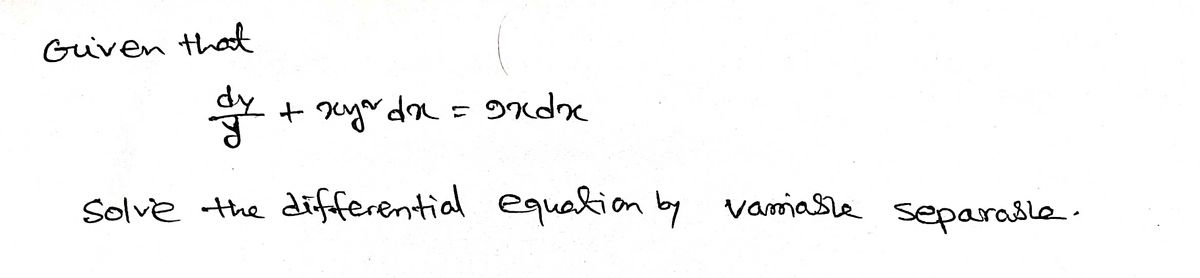 Given that
dy/y + xy² dx = 9xdx
Solve the differential equation by variable separable.